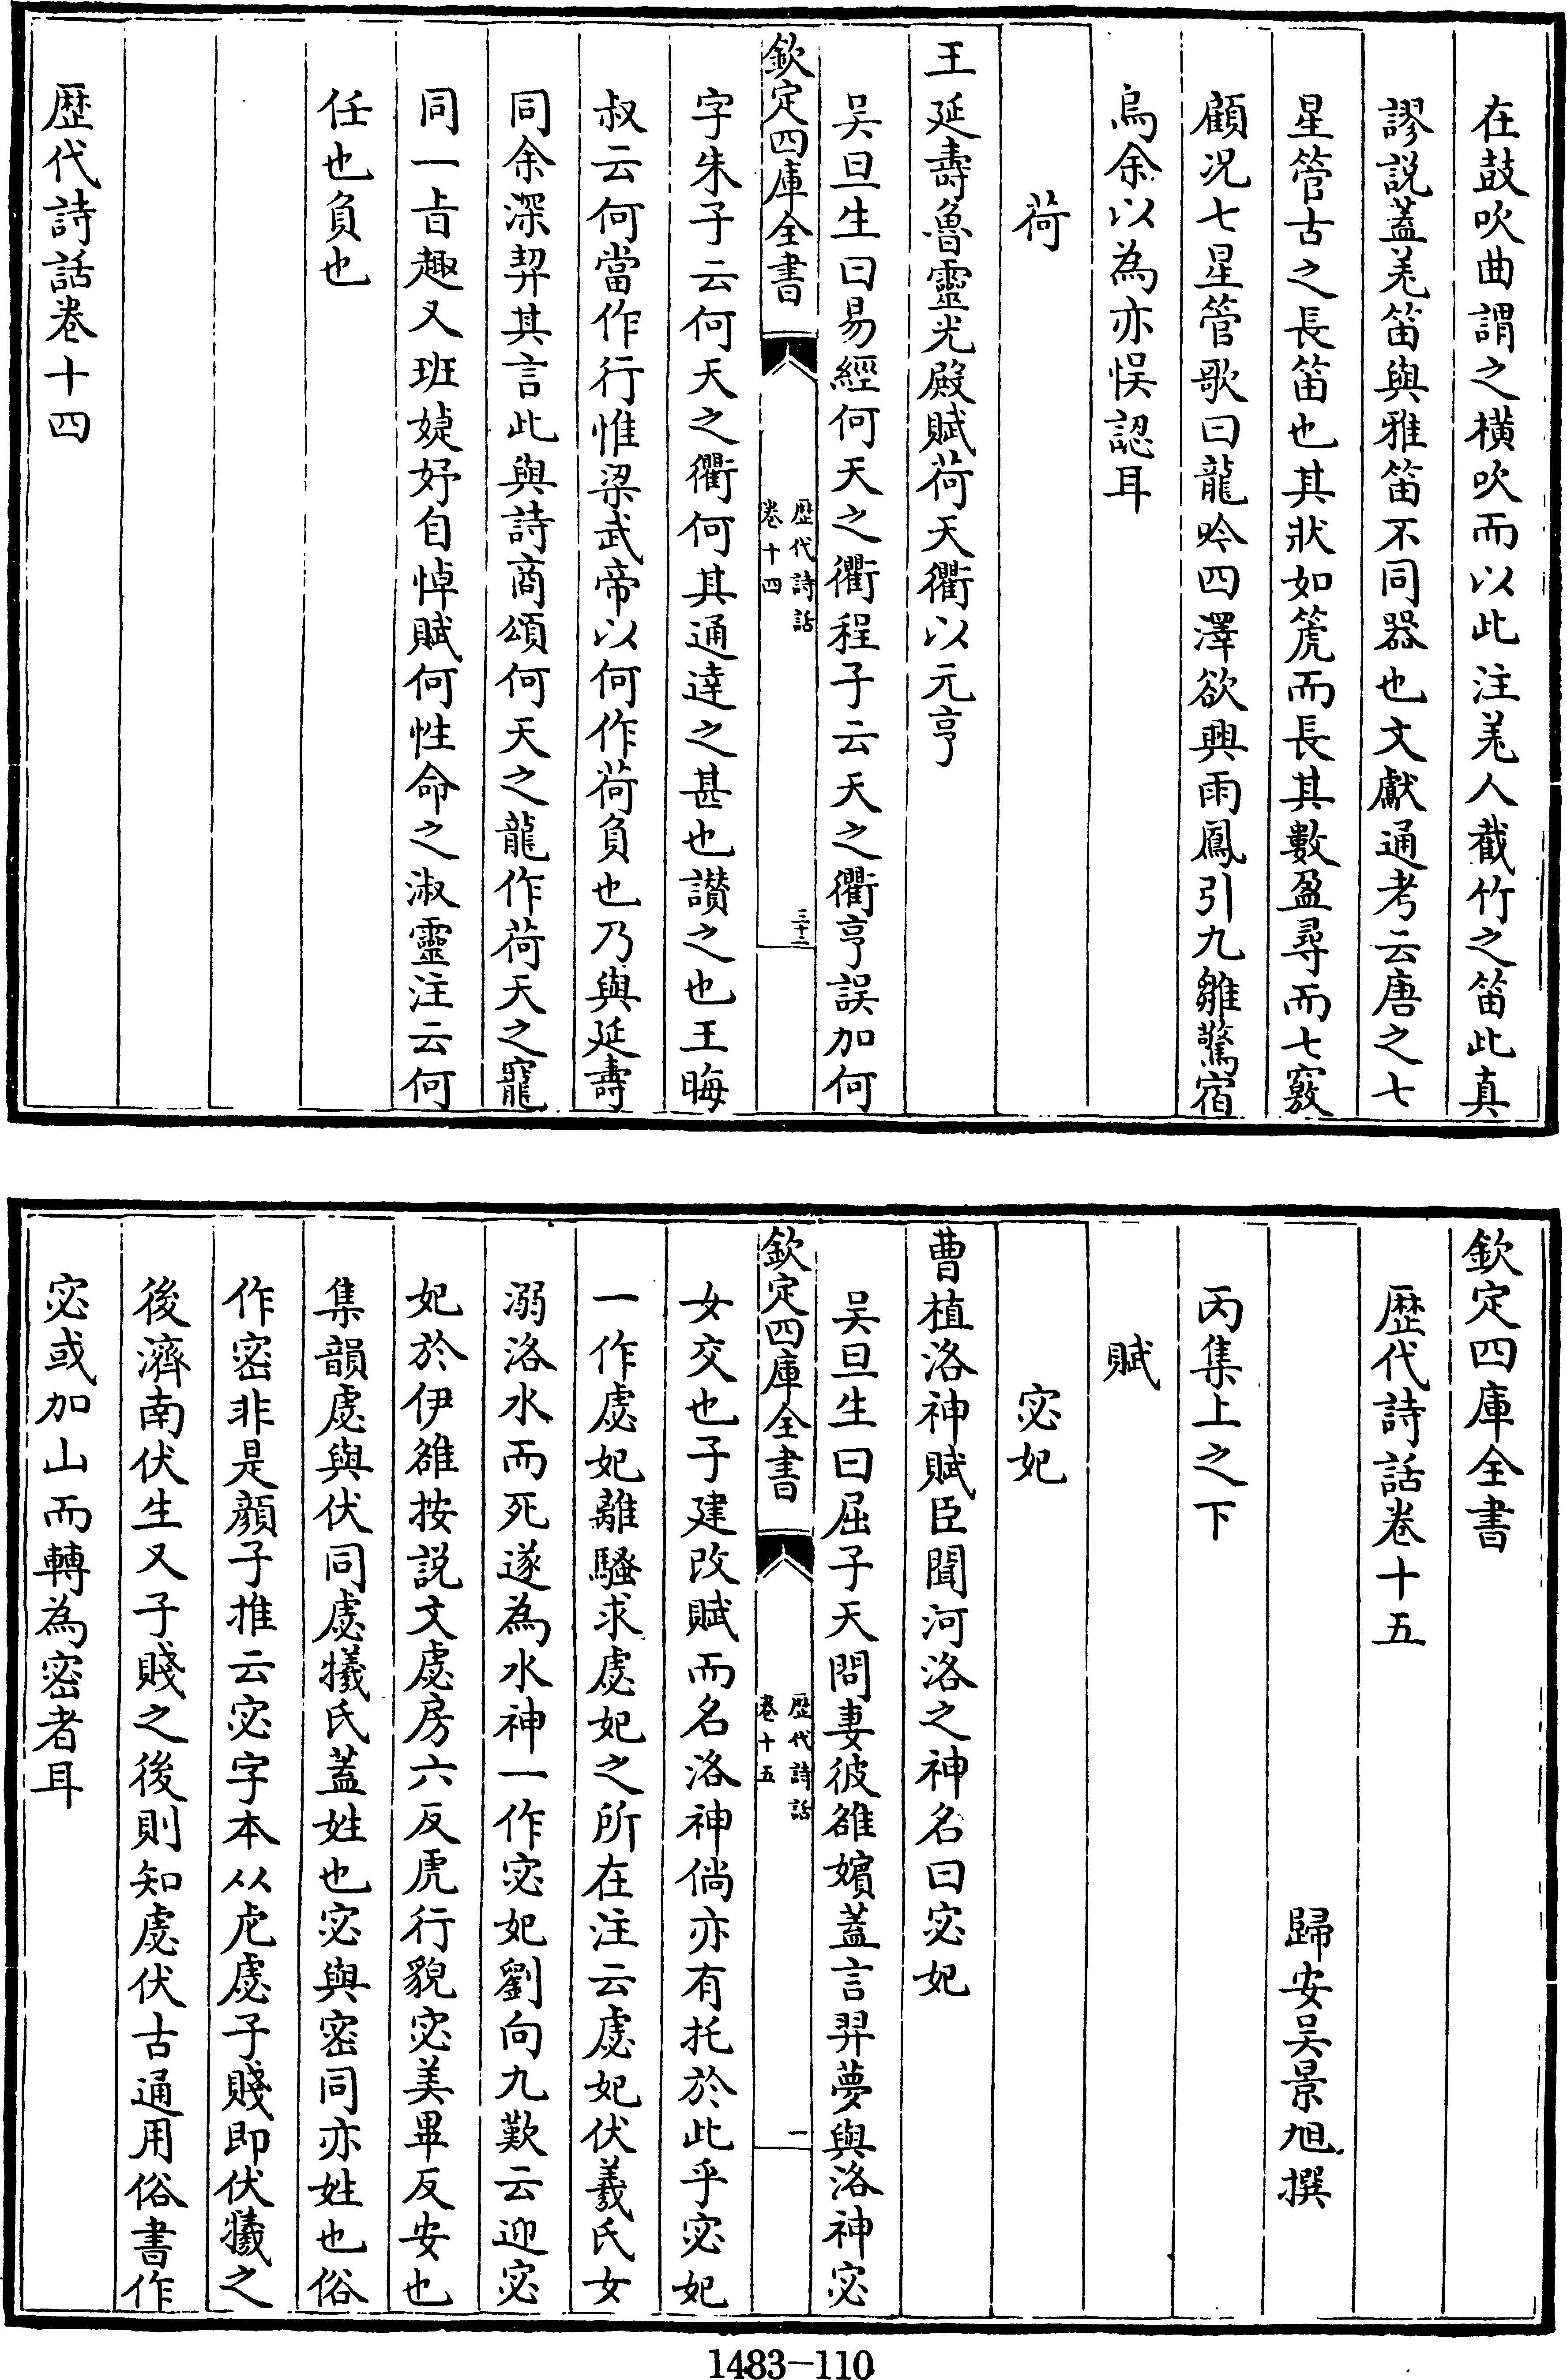 在鼓吹曲謂之横吹而以此注羌人截竹之笛此真
謬説蓋羌笛與雅笛不同器也文獻通考云唐之七
星管古之長笛也其狀如箎而長其數盈尋而七竅
顧况七星管歌曰龍吟四澤欲興雨鳳引九雛驚宿
烏余以為亦悞認耳
荷
王延壽魯靈光殿賦荷天衢以元亨
吴旦生曰易經何天之衢程子云天之衢亨誤加何
欽定四庫全書
歴代詩話
卷十四
三十二
字朱子云何天之衢何其通達之甚也讃之也王晦
叔云何當作行惟梁武帝以何作荷負也乃與延壽
同余深契其言此與詩商頌何天之龍作荷天之寵
同一㫖趣又班婕妤自悼賦何性命之淑靈注云何
任也負也
歴代詩話卷十四
欽定四庫全書
歴代詩話卷十五
歸安吴景旭撰
丙集上之下
賦
宓妃
曹植洛神賦臣聞河洛之神名曰宓妃
吴旦生曰屈子天問妻彼雒嬪蓋言羿夢與洛神宓
欽定四庫全書
歴代詩話
卷十五
一
女交也子建改賦而名洛神倘亦有托於此乎宓妃
一作虙妃離騷求虙妃之所在注云虙妃伏羲氏女
溺洛水而死遂為水神一作宓妃劉向九歎云迎宓
妃於伊雒按説文虙房六反虎行貌宓美畢反安也
集韻虙與伏同虙犧氏蓋姓也宓與密同亦姓也俗
作密非是顔子推云宓字本从虍虙子賤即伏犧之
後濟南伏生又子賤之後則知虙伏古通用俗書作
宓或加山而轉為密者耳
1483-110